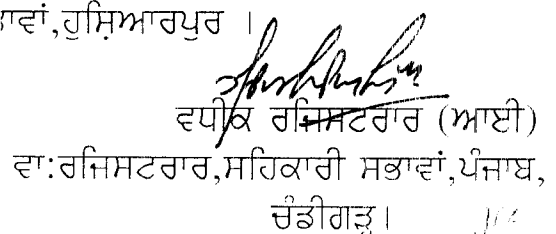 ਾਵਾਂ,ਹੁਸ਼ਿਆਰਪੁਰ ।
ਵਧੀਕ ਰਜਿਸਟਰਾਰ (ਆਈ)
ਵਾ:ਰਜਿਸਟਰਾਰ,ਸਹਿਕਾਰੀ ਸਭਾਵਾਂ,ਪੰਜਾਬ,
ਚੰਡੀਗੜ੍ਹ।